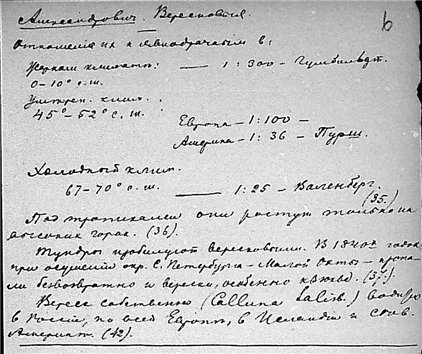 Александрович. Вересковыя
6
Отношение их к явнобрачным в:
Жарком климате: — 1:300 – Гумбольдт.
0–10° с.ш.
Умерен. клим.
45°–52° с.ш.
Европа – 1:100 –
Америка – 1:36 – Пурш.
Холодный клим.
67–70° с.ш. — 1:25 – Валенберг.
(35.)
Под тропиками они растут только на
высоких горах. (36).
Тундры изобилуют вересковыми. В 1840х годах
при осушении окр. С. Петербурга – Малой Охты – пропа-
ли безвозвратно и верески, особенно клюква. (37.)
Вереск собственно (Calluna Salisb.)
в России, по всей Европе, в Исландии и сев.
Америке. (42).